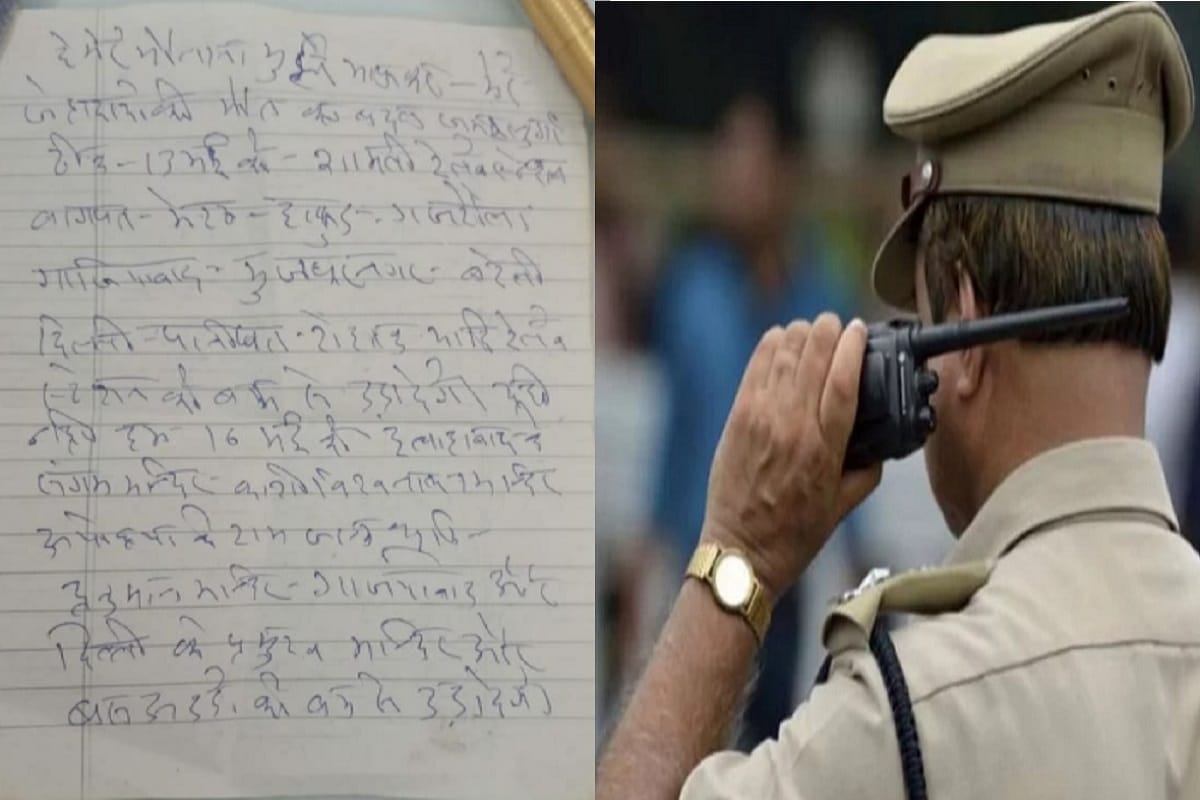 हे मेरे मौलाना मुझे माफ करे - मेरे
जेहादीयो की मौत का बदला जरूर लुगा
ठीक - 13 मई को - शामली रेलवे स्टेशन
बागपत - मेरठ - हापुड - गजरौला
गाजियाबाद - मुजफ्फरनगर - बरेली
दिल्ली - पानीपत - रोहतक आदि रेलवे
स्टेशन को बम से उड़ा देगे
हम 16 मई को इलाहाबाद के
संगम मन्दिर - काशी विश्वनाथ मन्दिर
अयोध्या के राम जन्म भूमि -
हनुमान मन्दिर - गाजियाबाद और
दिल्ली के प्रमुख मन्दिर और
बस अडडे को बम से उड़ा देगे